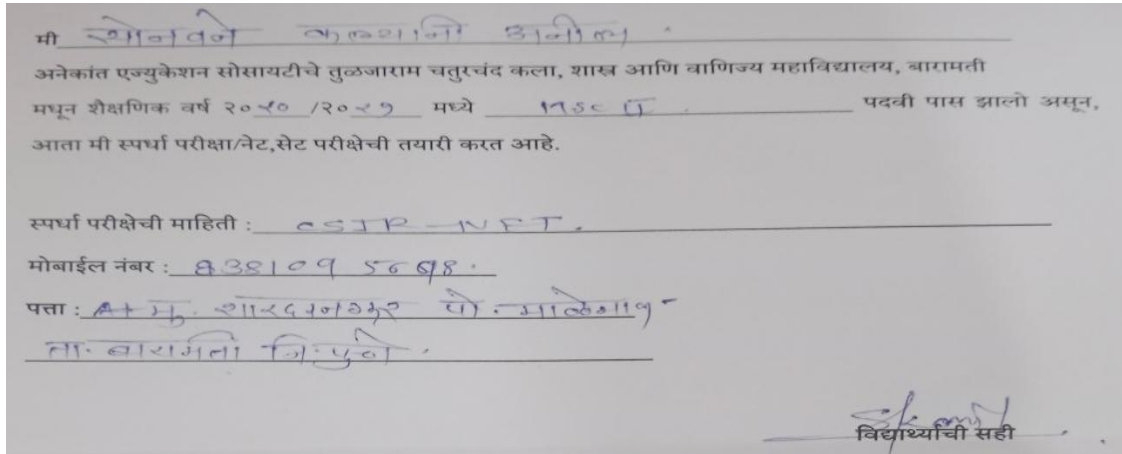 मी सोनवने कल्यानी अनील
अनेकांत एज्युकेशन सोसायटीचे तुळजाराम चतुरचंद कला, शास्त्र आणि वाणिज्य महाविद्यालय, बारामती
मधून शैक्षणिक वर्ष २०२० /२०२१ मध्ये MSC II पदवी पास झालो असून,
आता मी स्पर्धा परीक्षा/नेट,सेट परीक्षेची तयारी करत आहे.
स्पर्धा परीक्षेची माहिती : CSIR-NET.
मोबाईल नंबर :
पत्ता : मु. शारदानगर पो. माळेगाव
ता. बारामती जि. पुणे.
विद्यार्थ्याची सही